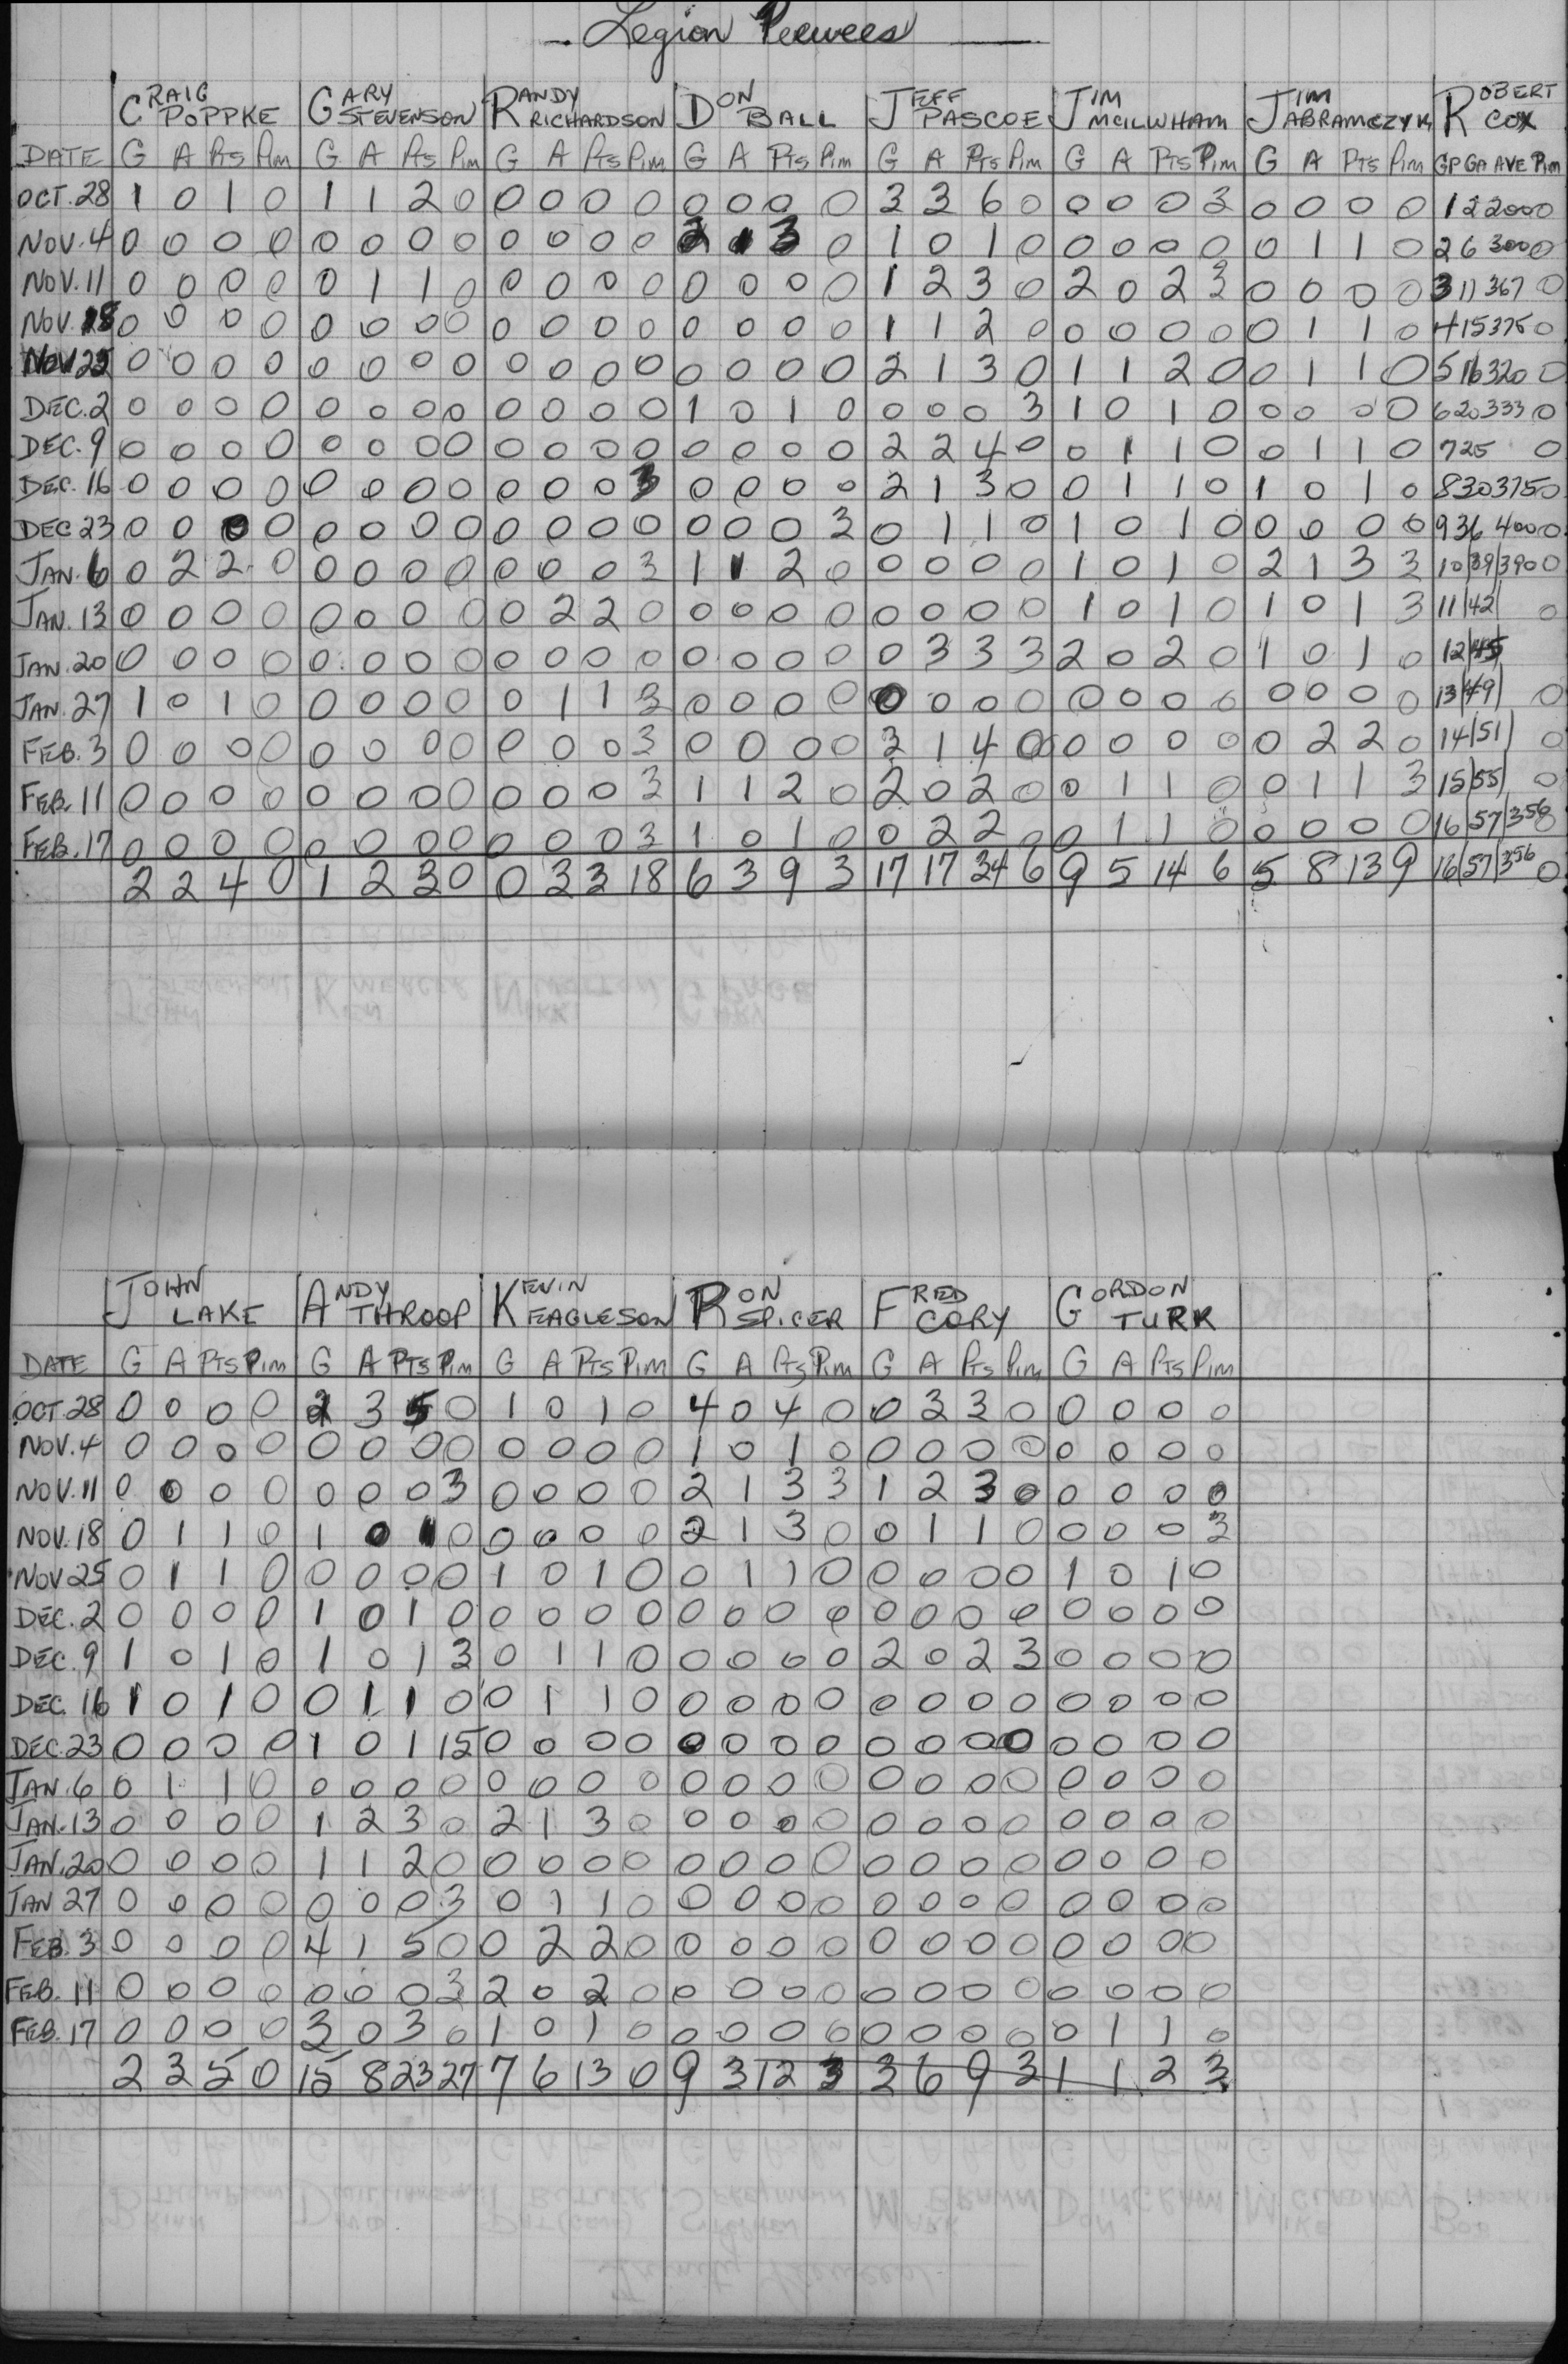 Legion Peewees
CRAIG POPPKE GARY STEVENSON RANDY RICHARDSON DON BALL JEFF PASCOE JIM MCILWHAM JIM ABRAMCZYK ROBERT COX
DATE G A Pts Pim G A Pts Pim G A Pts Pim G A Pts Pim G A Pts Pim G A Pts Pim G A Pts Pim GP GA AVE Pim
OCT. 28 1 0 1 0 1 1 2 0 0 0 0 0 0 0 0 0 3 3 6 0 0 0 0 3 0 0 0 0 1 2 2000 0
NOV. 4 0 0 0 0 0 0 0 0 0 0 0 0 2 1 3 0 1 0 1 0 0 0 0 0 0 1 1 0 2 6 300 0
NOV. 11 0 0 0 0 0 1 1 0 0 0 0 0 0 0 0 0 1 2 3 0 2 0 2 3 0 0 0 0 3 11 367 0
NOV. 18 0 0 0 0 0 0 0 0 0 0 0 0 0 0 0 0 1 1 2 0 0 0 0 0 0 1 1 0 4 15 375 0
NOV 25 0 0 0 0 0 0 0 0 0 0 0 0 0 0 0 0 2 1 3 0 1 1 2 0 0 1 1 0 5 16 320 0
DEC. 2 0 0 0 0 0 0 0 0 0 0 0 0 1 0 1 0 0 0 0 3 1 0 1 0 0 0 0 0 6 20 333 0
DEC. 9 0 0 0 0 0 0 0 0 0 0 0 0 0 0 0 0 2 2 4 0 0 1 1 0 0 1 1 0 7 25 0
DEC. 16 0 0 0 0 0 0 0 0 0 0 0 3 0 0 0 0 2 1 3 0 0 1 1 0 1 0 1 0 8 30 375 0
DEC 23 0 0 0 0 0 0 0 0 0 0 0 0 0 0 0 3 0 1 1 0 1 0 1 0 0 0 0 0 9 36 400 0
JAN. 6 0 2 2 0 0 0 0 0 0 0 0 3 1 1 2 0 0 0 0 0 1 0 1 0 2 1 3 3 10 39 390 0
JAN. 13 0 0 0 0 0 0 0 0 0 2 2 0 0 0 0 0 0 0 0 0 1 0 1 0 1 0 1 3 11 42 0
JAN. 20 0 0 0 0 0 0 0 0 0 0 0 0 0 0 0 0 0 3 3 3 2 0 2 0 1 0 1 0 12 45
JAN. 27 1 0 1 0 0 0 0 0 0 1 1 3 0 0 0 0 0 0 0 0 0 0 0 0 0 0 0 0 13 49 0
FEB. 3 0 0 0 0 0 0 0 0 0 0 0 3 0 0 0 0 3 1 4 0 0 0 0 0 0 2 2 0 14 51 0
FEB. 11 0 0 0 0 0 0 0 0 0 0 0 3 1 1 2 0 2 0 2 0 0 1 1 0 0 1 1 3 15 55 0
FEB. 17 0 0 0 0 0 0 0 0 0 0 0 3 1 0 1 0 0 2 2 0 0 1 1 0 0 0 0 0 16 57 356 0
2 2 4 0 1 2 3 0 0 3 3 18 6 3 9 3 17 17 34 6 9 5 14 6 5 8 13 9 16 57 356 0
JOHN LAKE ANDY THROOP KEVIN EAGLESON RON SPICER FRED CORY GORDON TURK
DATE G A Pts Pim G A Pts Pim G A Pts Pim G A Pts Pim G A Pts Pim G A Pts Pim
OCT 28 0 0 0 0 2 3 5 0 1 0 1 0 4 0 4 0 0 3 3 0 0 0 0 0
NOV. 4 0 0 0 0 0 0 0 0 0 0 0 0 1 0 1 0 0 0 0 0 0 0 0 0
NOV. 11 0 0 0 0 0 0 0 3 0 0 0 0 2 1 3 3 1 2 3 0 0 0 0 0
NOV. 18 0 1 1 0 1 0 1 0 0 0 0 0 2 1 3 0 0 1 1 0 0 0 0 3
NOV 25 0 1 1 0 0 0 0 0 1 0 1 0 0 1 1 0 0 0 0 0 1 0 1 0
DEC. 2 0 0 0 0 1 0 1 0 0 0 0 0 0 0 0 0 0 0 0 0 0 0 0 0
DEC. 9 1 0 1 0 1 0 1 3 0 1 1 0 0 0 0 0 2 0 2 3 0 0 0 0
DEC. 16 1 0 1 0 0 1 1 0 0 1 1 0 0 0 0 0 0 0 0 0 0 0 0 0
DEC. 23 0 0 0 0 1 0 1 15 0 0 0 0 0 0 0 0 0 0 0 0 0 0 0 0
JAN. 6 0 1 1 0 0 0 0 0 0 0 0 0 0 0 0 0 0 0 0 0 0 0 0 0
JAN. 13 0 0 0 0 1 2 3 0 2 1 3 0 0 0 0 0 0 0 0 0 0 0 0 0
JAN. 20 0 0 0 0 1 1 2 0 0 0 0 0 0 0 0 0 0 0 0 0 0 0 0 0
JAN 27 0 0 0 0 0 0 0 3 0 1 1 0 0 0 0 0 0 0 0 0 0 0 0 0
FEB. 3 0 0 0 0 4 1 5 0 0 2 2 0 0 0 0 0 0 0 0 0 0 0 0 0
FEB. 11 0 0 0 0 0 0 0 3 2 0 2 0 0 0 0 0 0 0 0 0 0 0 0 0
FEB. 17 0 0 0 0 3 0 3 0 1 0 1 0 0 0 0 0 0 0 0 0 0 1 1 0
2 3 5 0 15 8 23 27 7 6 13 0 9 3 12 3 3 6 9 3 1 1 2 3